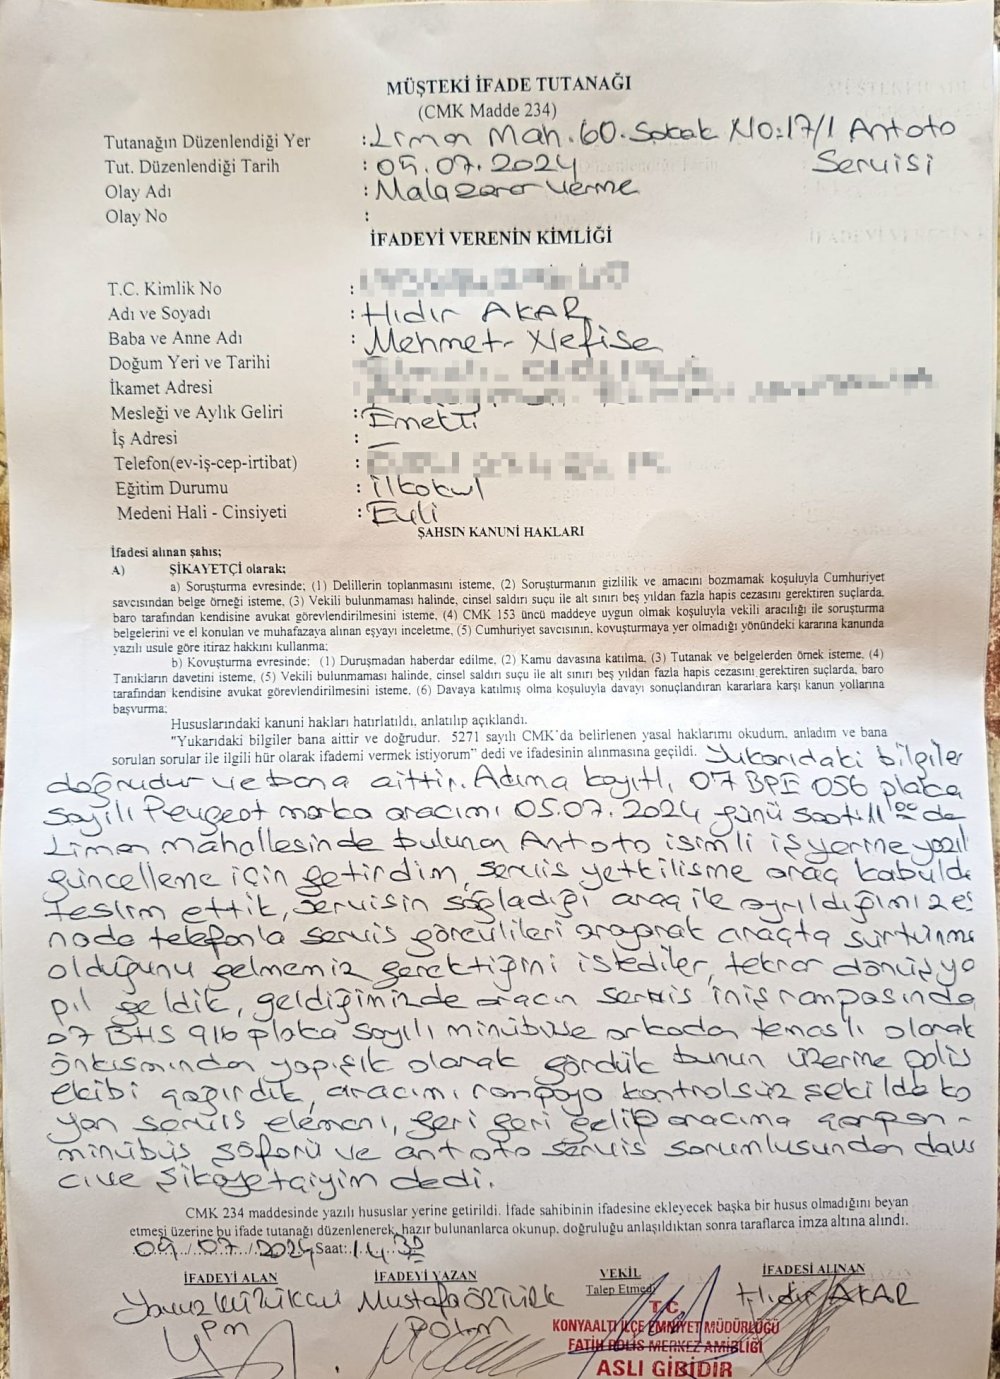 MÜŞTEKİ İFADE TUTANAĞI
(CMK Madde 234)
Tutanağın Düzenlendiği Yer : Liman Mah. 60. Sokak No:17/1 Antoto Servisi
Tut. Düzenlendiği Tarih : 05.07.2024
Olay Adı : Mala zarar verme
Olay No :
İFADEYİ VERENİN KİMLİĞİ
T.C. Kimlik No :
Adı ve Soyadı : Hıdır AKAR
Baba ve Anne Adı : Mehmet - Nefise
Doğum Yeri ve Tarihi :
İkamet Adresi :
Mesleği ve Aylık Geliri : Emekli
İş Adresi : —
Telefon(ev-iş-cep-irtibat) :
Eğitim Durumu : İlkokul
Medeni Hali - Cinsiyeti : Evli
ŞAHSIN KANUNİ HAKLARI
İfadesi alınan şahıs;
A) ŞİKAYETÇİ olarak;
a) Soruşturma evresinde; (1) Delillerin toplanmasını isteme, (2) Soruşturmanın gizlilik ve amacını bozmamak koşuluyla Cumhuriyet
savcısından belge örneği isteme, (3) Vekili bulunmaması halinde, cinsel saldırı suçu ile alt sınırı beş yıldan fazla hapis cezasını gerektiren suçlarda,
baro tarafından kendisine avukat görevlendirilmesini isteme, (4) CMK 153 üncü maddeye uygun olmak koşuluyla vekili aracılığı ile soruşturma
belgelerini ve el konulan ve muhafazaya alınan eşyayı inceletme, (5) Cumhuriyet savcısının, kovuşturmaya yer olmadığı yönündeki kararına kanunda
yazılı usule göre itiraz hakkını kullanma;
b) Kovuşturma evresinde; (1) Duruşmadan haberdar edilme, (2) Kamu davasına katılma, (3) Tutanak ve belgelerden örnek isteme, (4)
Tanıkların davetini isteme, (5) Vekili bulunmaması halinde, cinsel saldırı suçu ile alt sınırı beş yıldan fazla hapis cezasını gerektiren suçlarda, baro
tarafından kendisine avukat görevlendirilmesini isteme, (6) Davaya katılmış olma koşuluyla davayı sonuçlandıran kararlara karşı kanun yollarına
başvurma;
Hususlarındaki kanuni hakları hatırlatıldı, anlatılıp açıklandı.
"Yukarıdaki bilgiler bana aittir ve doğrudur. 5271 sayılı CMK'da belirlenen yasal haklarımı okudum, anladım ve bana
sorulan sorular ile ilgili hür olarak ifademi vermek istiyorum" dedi ve ifadesinin alınmasına geçildi. Yukarıdaki bilgiler
doğrudur ve bana aittir. Adıma kayıtlı, 07 BPE 056 plaka
sayılı Peugeot marka aracımı 05.07.2024 günü saat:11 00 da
Liman Mahallesinde bulunan Antoto isimli işyerine yazıl
güncelleme için getirdim, servis yetkilisine araç kabulde
teslim ettik, servisin sağladığı araç ile ayrıldığımız es
nada telefonla servis görevlileri arayarak araçta sürtünme
olduğunu gelmemiz gerektiğini istediler, tekrar dönüş ya
pıl geldik, geldiğimizde aracın servis iniş rampasında
07 BHS 916 plaka sayılı minübüse arkadan temaslı olarak
önkısmından yapışık olarak gördük bunun üzerine polis
ekibi çağırdık, aracımı rampaya kontrolsüz şekilde ko
yan servis elemanı, geri geri gelip aracıma çarpan
minübüs şöförü ve antoto servis sorumlusundan dava
cı ve şikayetçiyim dedi.
CMK 234 maddesinde yazılı hususlar yerine getirildi. İfade sahibinin ifadesine ekleyecek başka bir husus olmadığını beyan
etmesi üzerine bu ifade tutanağı düzenlenerek, hazır bulunanlarca okunup, doğruluğu anlaşıldıktan sonra taraflarca imza altına alındı.
05/07/2024 Saat: 14:32
İFADEYİ ALAN İFADEYİ YAZAN VEKİL İFADESİ ALINAN
Talep Etmedi
Yavuz Mustafa ÖZTÜRK Hıdır AKAR
PM POL.M
T.C.
KONYAALTI İLÇE EMNİYET MÜDÜRLÜĞÜ
FATİH POLİS MERKEZ AMİRLİĞİ
ASLI GİBİDİR